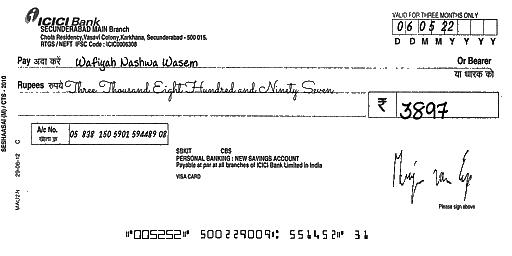 ICICI Bank
SECUNDERABAD MAIN Branch
Chola Residency, Vasavi Colony, Karkhana, Secunderabad - 500 015.
RTGS / NEFT IFSC Code : ICIC0006308
VALID FOR THREE MONTHS ONLY
060522
D D M M Y Y Y Y
Pay अदा करें Wafiyah Nashwa Wasem Or Bearer
या धारक को
Rupees रुपये Three Thousand Eight Hundred and Ninety Seven
₹ 3897
A/c No. 05 838 150 5901 594489 08
SBKIT CBS
PERSONAL BANKING : NEW SAVINGS ACCOUNT
Payable at par at all branches of ICICI Bank Limited in India
VISA CARD
Please sign above
"005252" 500229009: 551452" 31